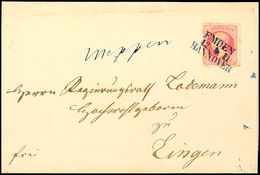 EMDEN
HANNOVER
Meppen
Herrn Regierungsrath Lodemann
Hochwohlgeboren
zu
Lingen
frei